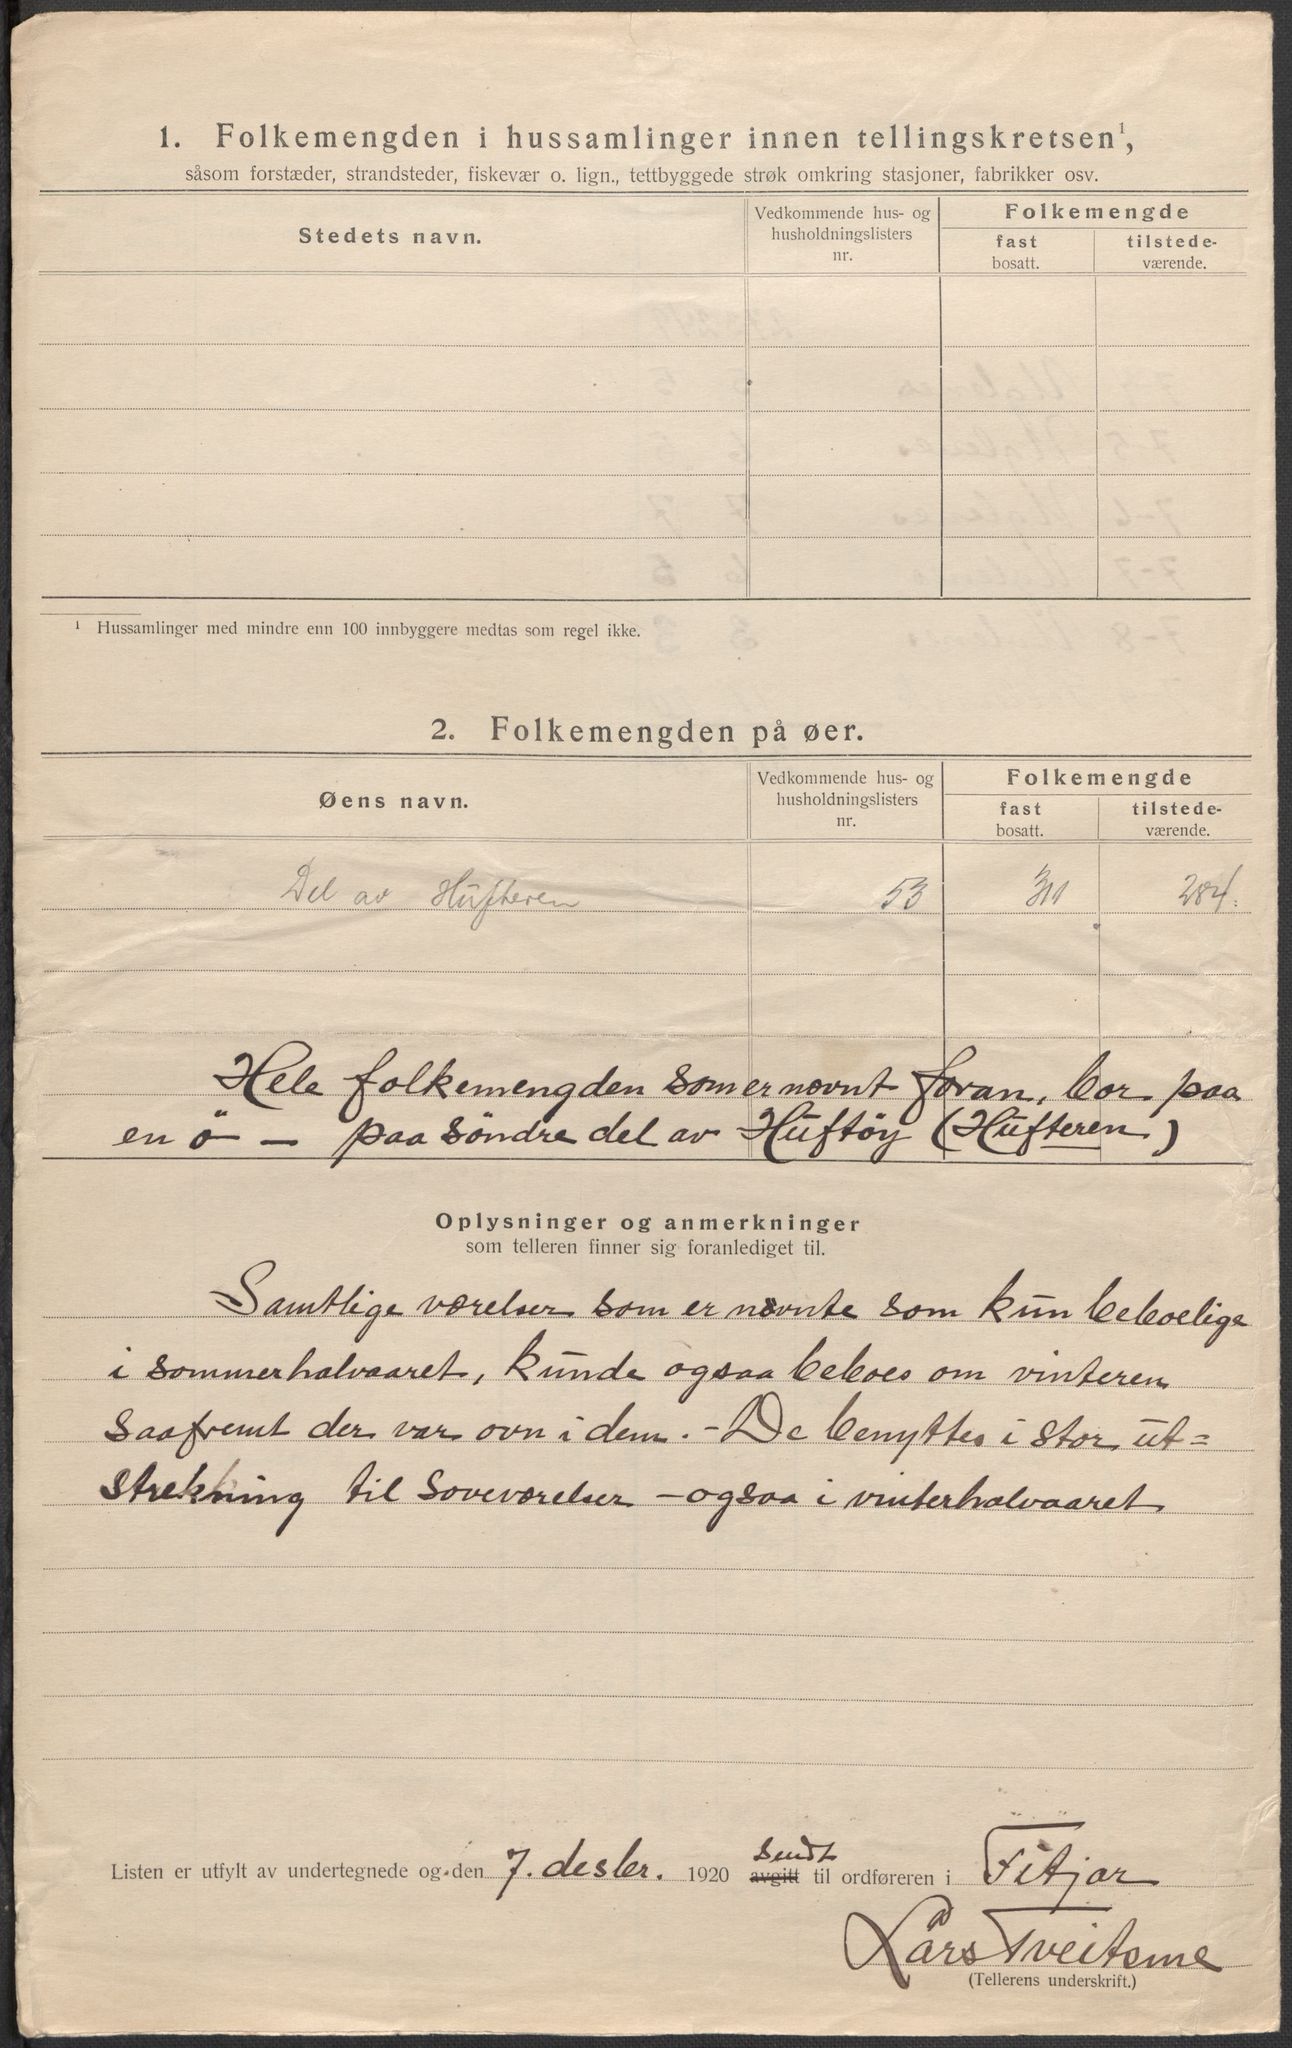 1. Folkemengden i hussamlinger innen tellingskretsen¹,
såsom forstæder, strandsteder, fiskevær o. lign., tettbyggede strøk omkring stasjoner, fabrikker osv.
Stedets navn.
Vedkommende hus- og
husholdningslisters
nr.
Folkemengde
fast
bosatt.
tilstede-
værende.
¹ Hussamlinger med mindre enn 100 innbyggere medtas som regel ikke.
2. Folkemengden på øer.
Øens navn.
Vedkommende hus- og
husholdningslisters
nr.
Folkemengde
fast
bosatt.
tilstede-
værende.
Del av Hufteren 53 311 284.
Hele folkemengden som er nævnt foran, bor paa
en ö – paa söndre del av Huftöy (Hufteren)
Oplysninger og anmerkninger
som telleren finner sig foranlediget til.
Samtlige værelser som er nævnte som kun beboelige
i sommerhalvaaret, kunde ogsaa beboes om vinteren
saafremt der var ovn i dem. – De benyttes i stor ut=
strekning til soveværelser – ogsaa i vinterhalvaaret
sendt
Listen er utfylt av undertegnede og den 7. desbr. 1920 avgitt til ordføreren i Fitjar
Lars Tveitsme
(Tellerens underskrift.)